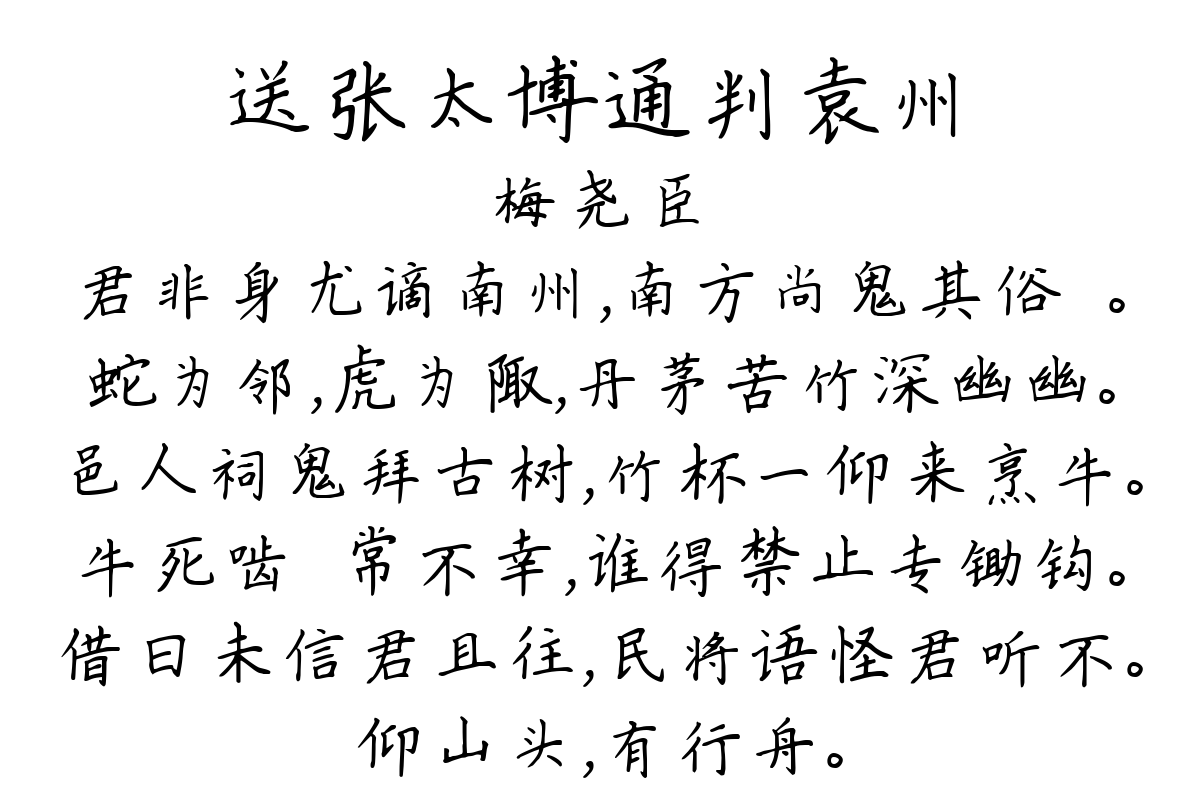 送张太博通判袁州
梅尧臣
君非身尤谪南州,南方尚鬼其俗 。
蛇为邻,虎为陬,丹茅苦竹深幽幽。
邑人祠鬼拜古树,竹杯一仰来烹牛。
牛死啮 常不幸,谁得禁止专锄钩。
借曰未信君且往,民将语怪君听不。
仰山头,有行舟。